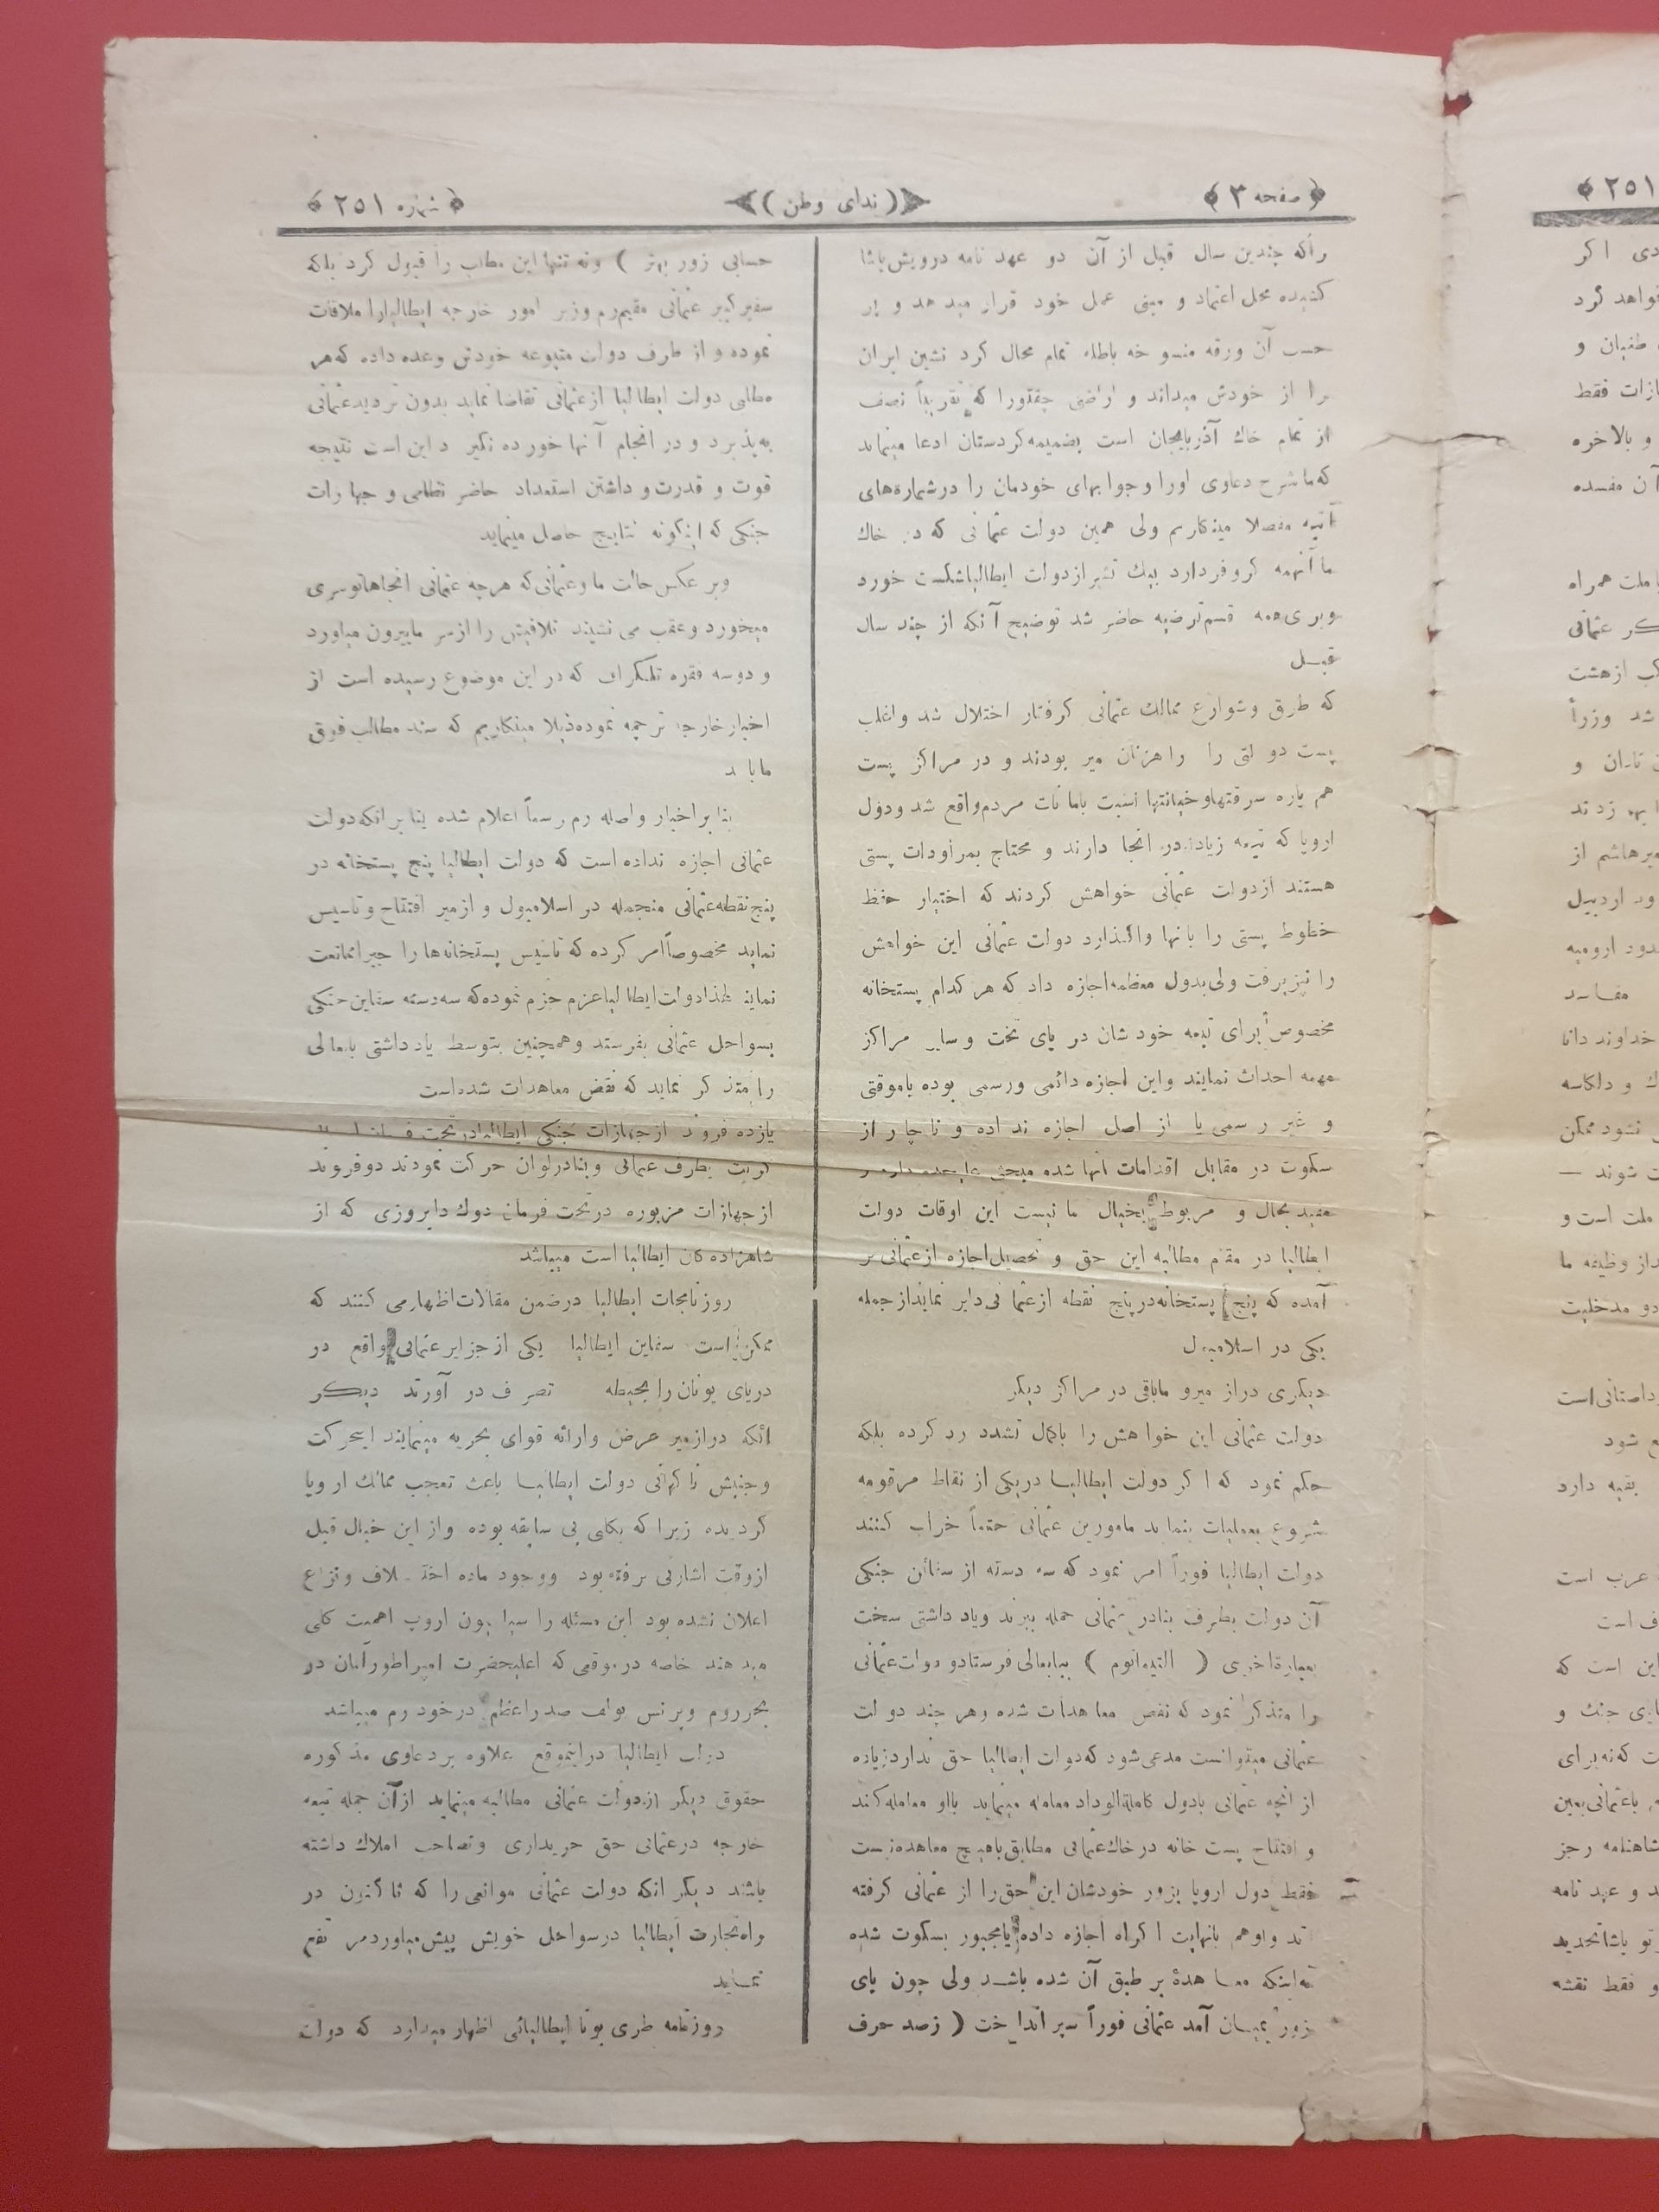 صفحه ۳
(ندای وطن)
شماره ۲۵۱
راکه چندین سال قبل از آن دو عهد نامه درویش پاشا
کشیده محل اعتماد و مبنی عمل خود قرار میدهد و بر
حسب آن ورقه منسوخه باطله تمام محال کرد نشین ایران
را از خودش میداند و اراضی چقتورا که تقریباً نصف
از تمام خاك آذربایجان است بضمیمه کردستان ادعا مینماید
که ما شرح دعاوی اورا و جوابهای خودمان را در شمارههای
آتیه مفصلا مینکاریم ولی همین دولت عثمانی که در خاك
ما آنهمه کروفر دارد بیك تشر از دولت ایطالیا شکست خورد
وبر ی همه قسم ترضیه حاضر شد توضیح آنکه از چند سال
قبـل
که طرق وشوارع ممالك عثمانی کرفتار اختلال شد واغلب
پست دولتی را راهزنان میر بودند و در مراکز پست
هم پاره سرقتها وخیانتها نسبت بامانات مردم واقع شد ودول
اروپا که تبعه زیاد در انجا دارند و محتاج بمراودات پستی
هستند از دولت عثمانی خواهش کردند که اختیار حفظ
خطوط پستی را بانها واکذارد دولت عثمانی این خواهش
را نپزیرفت ولی بدول معظمه اجازه داد که هر کدام پستخانه
مخصوص برای تبعه خودشان در پای تخت و سایر مراکز
مهمه احداث نمایند واین اجازه دائمی ورسمی بوده یاموقتی
و غیر رسمی یا از اصل اجازه نداده و ناچار از
سکوت در مقابل اقدامات انها شده مبحثی علیحده دارد و
مفید بحال و مربوط بخیال ما نیست این اوقات دولت
ایطالیا در مقام مطالبه این حق و تحصیل اجازه از عثمانی بر
آمده که پنج پستخانه در پنج نقطه از عثمانی دایر نماید از جمله
یکی در اسلامبول
دیکری در ازمیرو مابقی در مراکز دیکر
دولت عثمانی این خواهش را بکمال تشدد رد کرده بلکه
حکم نمود که اکر دولت ایطالیـا در یکی از نقاط مرقومه
شروع بعملیات بنماید مامورین عثمانی حتماً خراب کنند
دولت ایطالیا فوراً امر نمود که سه دسته از سفائن جنکی
آن دولت بطرف بنادر عثمانی حمله ببرند ویاد داشتی سخت
بعبارة اخری ( التیماتوم ) ببابعالی فرستاد و دولت عثمانی
را متذکر نمود که نقض معاهدات شده وهر چند دولت
عثمانی میتوانست مدعی شود که دولت ایطالیا حق ندارد زیاده
از انچه عثمانی بادول کاملةالوداد معامله مینماید بااو معامله کند
و افتتاح پست خانه در خاك عثمانی مطابق باهیچ معاهده نیست
فقط دول اروپا بزور خودشان این حق را از عثمانی کرفته
اند واوهم بانهایت اکراه اجازه داده یامجبور بسکوت شده
نه اینکه معـاهدهٔ بر طبق آن شده باشـد ولی چون پای
زور بمیـان آمد عثمانی فوراً سپر انداخت ( زصد حرف
حسابی زور بهتر ) ونه تنها این مطلب را قبول کرد بلکه
سفیر کبیر عثمانی مقیم رم وزیر امور خارجه ایطالیارا ملاقات
نموده و از طرف دولت متبوعه خودش وعده داده که هر
مطلبی دولت ایطالیا از عثمانی تقاضا نماید بدون تردید عثمانی
بپذیرد و در انجام آنها خورده نکیرد این است نتیجه
قوت و قدرت و داشتن استعداد حاضر نظامی و جهازات
جنکی که اینکونه نتایج حاصل مینماید
وبر عکس حالت ما وعثمانی که هرچه عثمانی انجاها توسری
میخورد وعقب می نشیند تلافیش را از سر مابیرون میاورد
و دوسه فقره تلکراف که در این موضوع رسیده است از
اخبار خارجه ترجمه نموده ذیلا مینکاریم که سند مطالب فوق
ما باشد
بنا بر اخبار واصله رم رسماً اعلام شده بنا برانکه دولت
عثمانی اجازه نداده است که دولت ایطالیا پنج پستخانه در
پنج نقطه عثمانی منجمله در اسلامبول و ازمیر افتتاح وتاسیس
نماید مخصوصاً امر کرده که تاسیس پستخانهها را جبرا ممانعت
نمایند لهذا دولت ایطالیا عزم جزم نموده که سه دسته سفاین جنکی
بسواحل عثمانی بفرستد وهمچنین بتوسط یادداشتی بابعالی
را متذکر نماید که نقض معاهدات شده است
یازده فروند از جهازات جنکی ایطالیا در تحت
کریت بطرف عثمانی وبنادر لوان حرکت نمودند دو فروند
از جهازات مزبوره در تحت فرمان دوك دابروزی که از
شاهزاده کان ایطالیا است میباشد
روزنامجات ایطالیا درضمن مقالات اظهار می کنند که
ممکن است سفاین ایطالیا یکی از جزایر عثمانی واقع در
دریای یونان را بحیطه تصرف در آورند دیـکر
انکه در ازمیر عرض وارائه قوای بحریه مینمایند اینحرکت
وجنبش ناکهانی دولت ایطالیـا باعث تعجب ممالك اروپا
کردیده زیرا که بکلی بی سابقه بوده واز این خیال قبل
از وقت اشارتی نرفته بود ووجود ماده اختـلاف ونزاع
اعلان نشده بود این مسئله را سیاسیون اروپ اهمیت کلی
میدهند خاصه در موقعی که اعلیحضرت امپراطور آلمان در
بحر روم وپرنس بولف صدر اعظم در خود رم میباشد
دولت ایطالیا در اینموقع علاوه بر دعاوی مذکوره
حقوق دیکر از دولت عثمانی مطالبه مینماید از آن جمله تبعه
خارجه در عثمانی حق خریداری وتصاحب املاك داشته
باشند دیکر انکه دولت عثمانی موانعی را که تا کنون در
راه تجارت ایطالیا در سواحل خویش پیش میاورد مرتفع
نمـاید
روزنامه طری بونا ایطالیائی اظهار میدارد که دولت